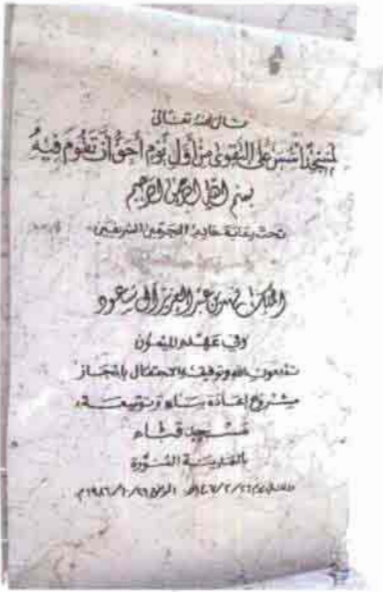 قال الله تعالى
لمسجد أسس على التقوى من أول يوم أحق أن تقوم فيه
بسم الله الرحمن الرحيم
تحت رعاية خادم الحرمين الشريفين
الملك فهد بن عبد العزيز آل سعود
وفي عهده الميمون
تم بعون الله وتوفيقه الاحتفال بإنجاز
مشروع إعادة بناء وتوسعة
مسجد قباء
بالمدينة المنورة
١٤٠٧/٢/٢٦هـ الموافق